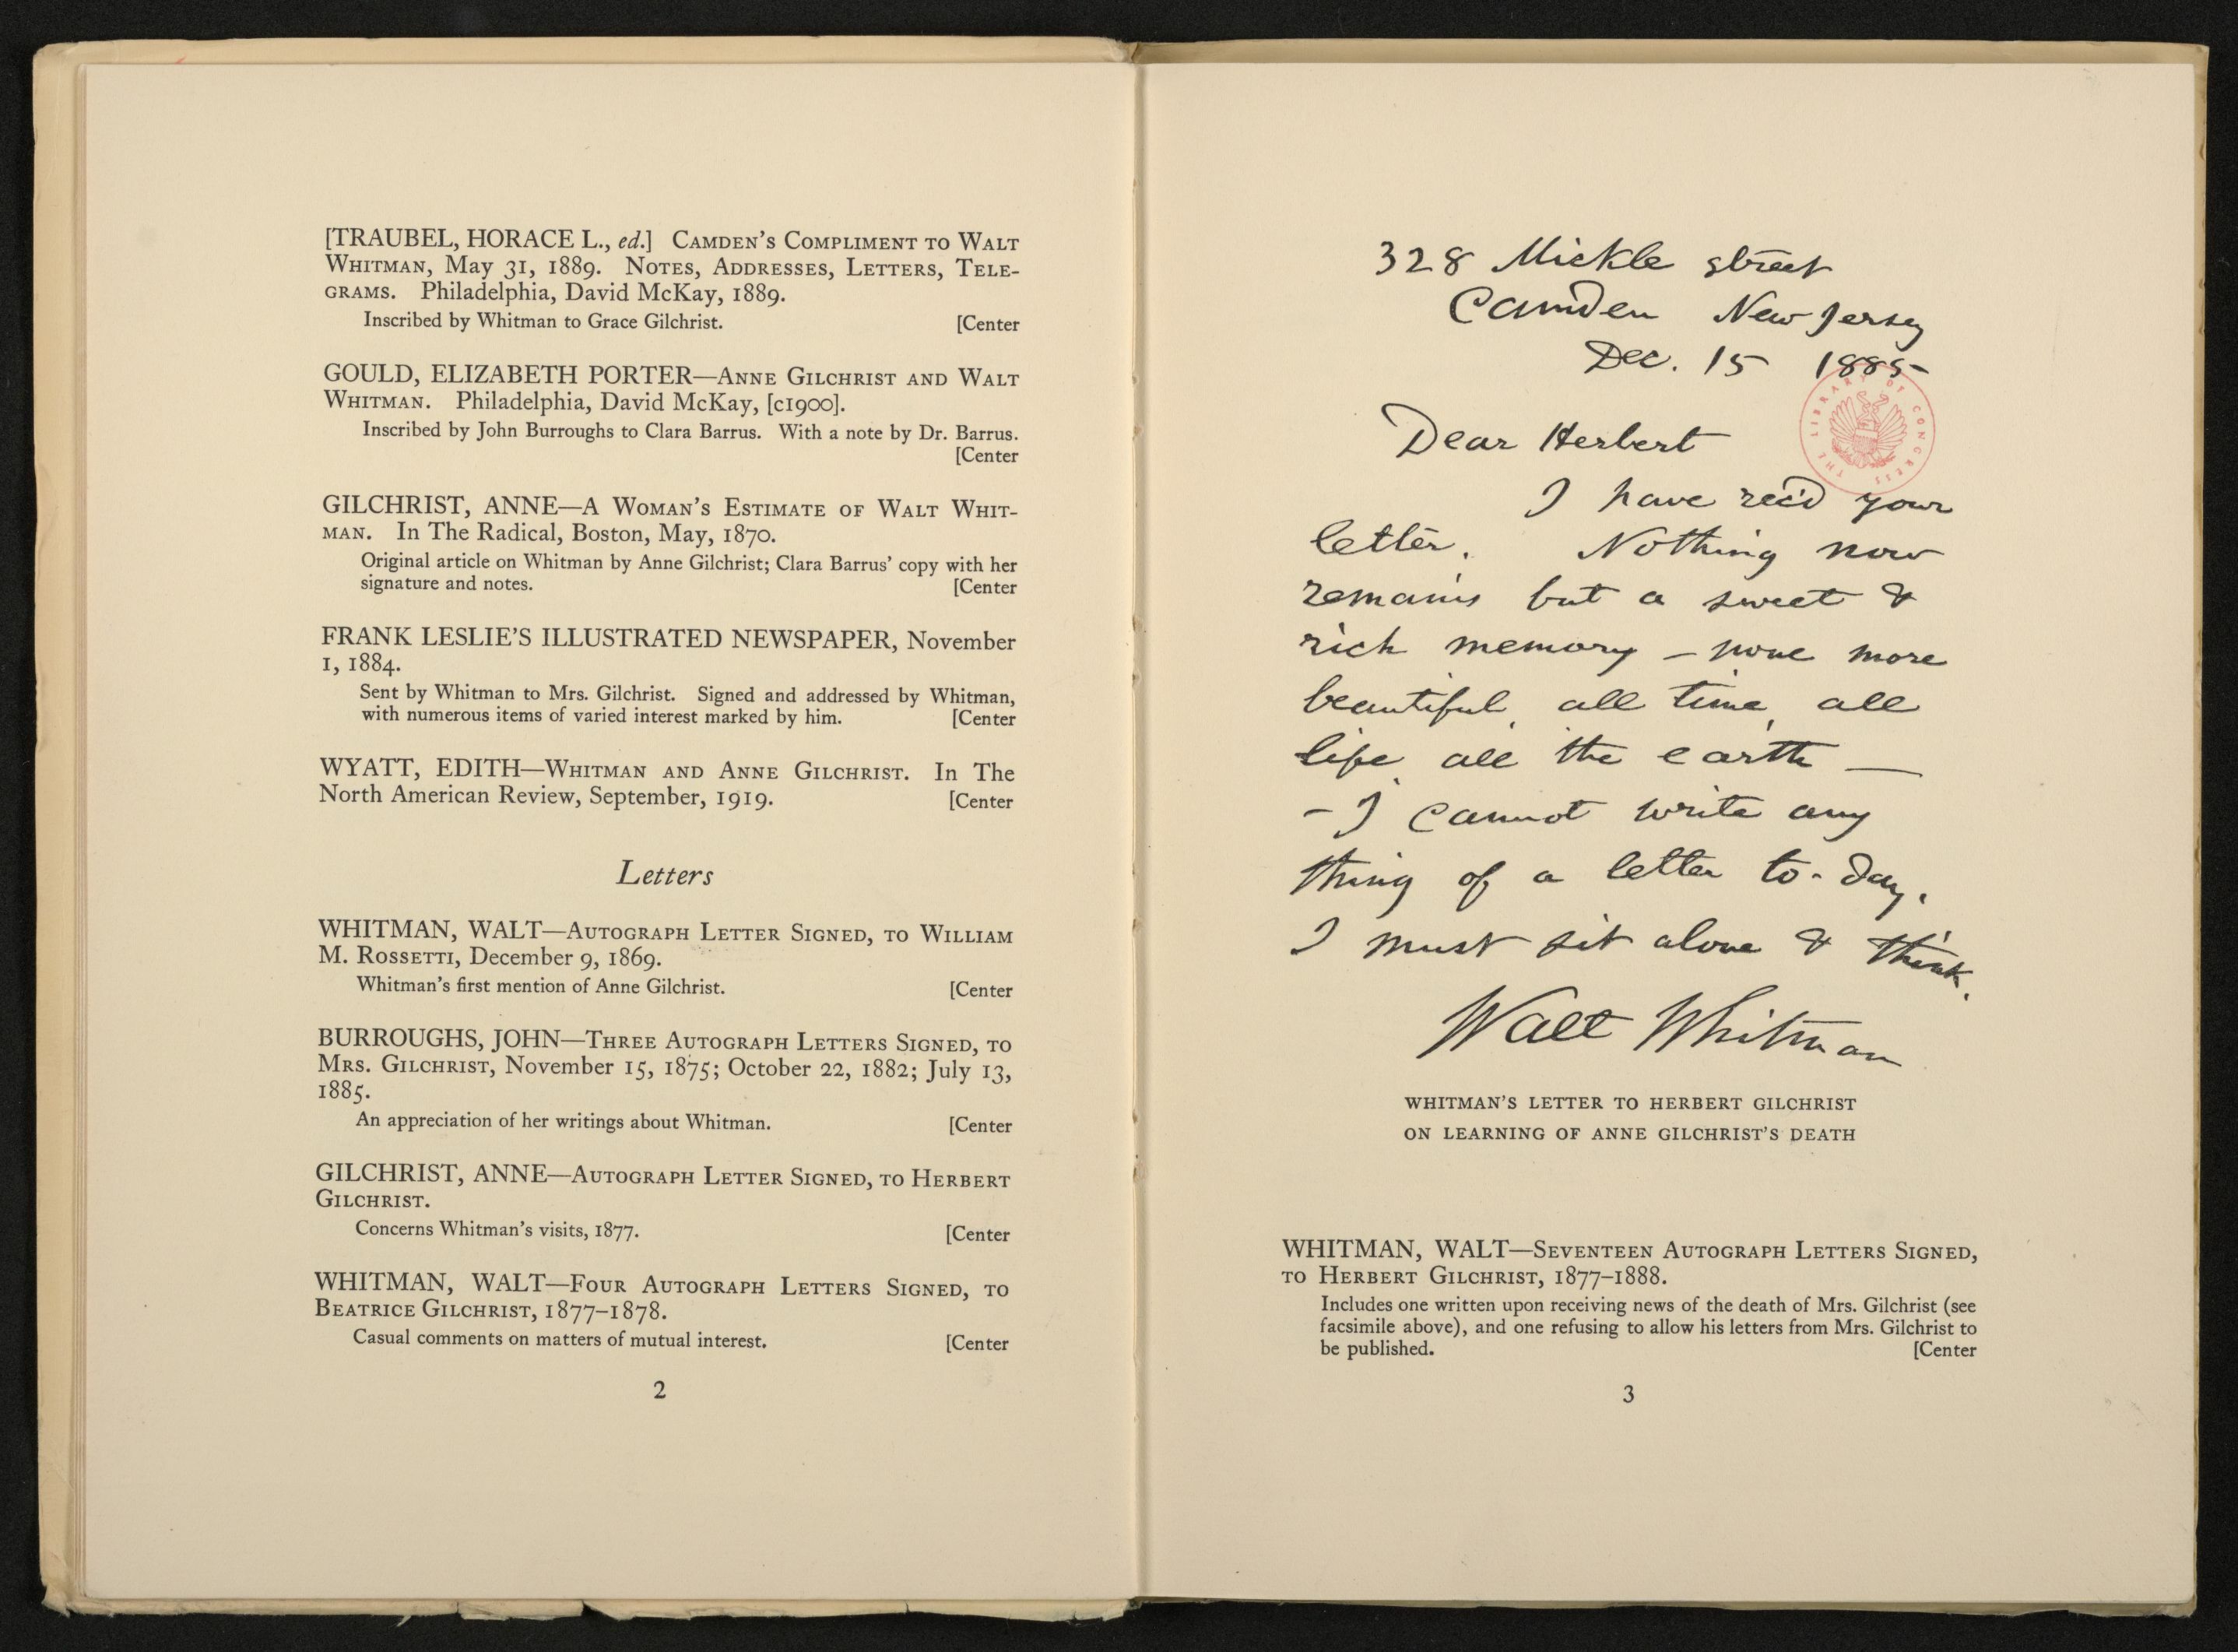 [TRAUBEL, HORACE L., ed.] CAMDEN'S COMPLIMENT TO WALT
WHITMAN, May 31, 1889. NOTES, ADDRESSES, LETTERS, TELE-
GRAMS. Philadelphia, David McKay, 1889.
Inscribed by Whitman to Grace Gilchrist. [Center
GOULD, ELIZABETH PORTER—ANNE GILCHRIST AND WALT
WHITMAN. Philadelphia, David McKay, [c1900].
Inscribed by John Burroughs to Clara Barrus. With a note by Dr. Barrus.
[Center
GILCHRIST, ANNE—A WOMAN'S ESTIMATE OF WALT WHIT-
MAN. In The Radical, Boston, May, 1870.
Original article on Whitman by Anne Gilchrist; Clara Barrus' copy with her
signature and notes. [Center
FRANK LESLIE'S ILLUSTRATED NEWSPAPER, November
1, 1884.
Sent by Whitman to Mrs. Gilchrist. Signed and addressed by Whitman,
with numerous items of varied interest marked by him. [Center
WYATT, EDITH—WHITMAN AND ANNE GILCHRIST. In The
North American Review, September, 1919. [Center
Letters
WHITMAN, WALT—AUTOGRAPH LETTER SIGNED, TO WILLIAM
M. ROSSETTI, December 9, 1869.
Whitman's first mention of Anne Gilchrist. [Center
BURROUGHS, JOHN—THREE AUTOGRAPH LETTERS SIGNED, TO
MRS. GILCHRIST, November 15, 1875; October 22, 1882; July 13,
1885.
An appreciation of her writings about Whitman. [Center
GILCHRIST, ANNE—AUTOGRAPH LETTER SIGNED, TO HERBERT
GILCHRIST.
Concerns Whitman's visits, 1877. [Center
WHITMAN, WALT—FOUR AUTOGRAPH LETTERS SIGNED, TO
BEATRICE GILCHRIST, 1877–1878.
Casual comments on matters of mutual interest. [Center
2
328 Mickle street
Camden New Jersey
Dec. 15 1885
THE LIBRARY OF CONGRESS
Dear Herbert
I have rec'd your
letter. Nothing now
remains but a sweet &
rich memory – none more
beautiful, all time, all
life, all the earth —
– I cannot write any
thing of a letter to-day.
I must sit alone & think.
Walt Whitman
WHITMAN'S LETTER TO HERBERT GILCHRIST
ON LEARNING OF ANNE GILCHRIST'S DEATH
WHITMAN, WALT—SEVENTEEN AUTOGRAPH LETTERS SIGNED,
TO HERBERT GILCHRIST, 1877–1888.
Includes one written upon receiving news of the death of Mrs. Gilchrist (see
facsimile above), and one refusing to allow his letters from Mrs. Gilchrist to
be published. [Center
3